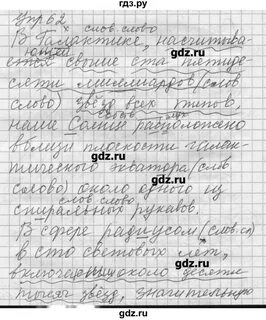 Упр 62
слов. слово
В Галактике, насчитыва-
ющей
ется свыше ста пятиде-
сяти миллиардов (слов.
слово) звезд всех типов,
наше Солнце расположено
вблизи плоскости галак-
тического экватора (слов.
слово) около одного из
слов. слово
спиральных рукавов.
В сфере радиусом (слов. сл)
в сто световых лет,
включающих около десяти
тысяч звёзд, значительную
gdz.ru
gdz.ru
gdz.ru
gdz.ru
gdz.ru
gdz.ru
gdz.ru
gdz.ru